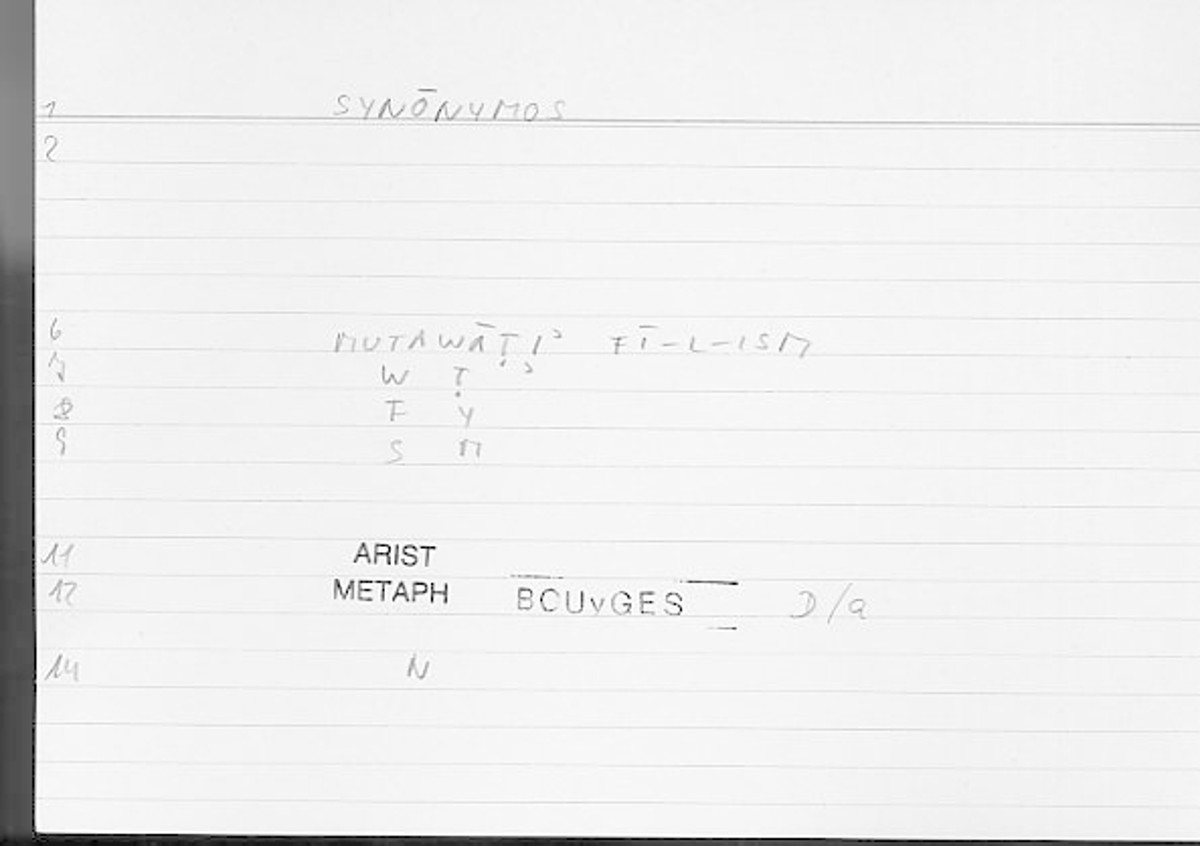 1 SYNŌNYMOS
2
6 MUTAWĀṬIʾ FĪ-L-ISM
7 W Ṭ ʾ
8 F Y
9 S M
11 ARIST
12 METAPH BOUYGES D/a
14 N